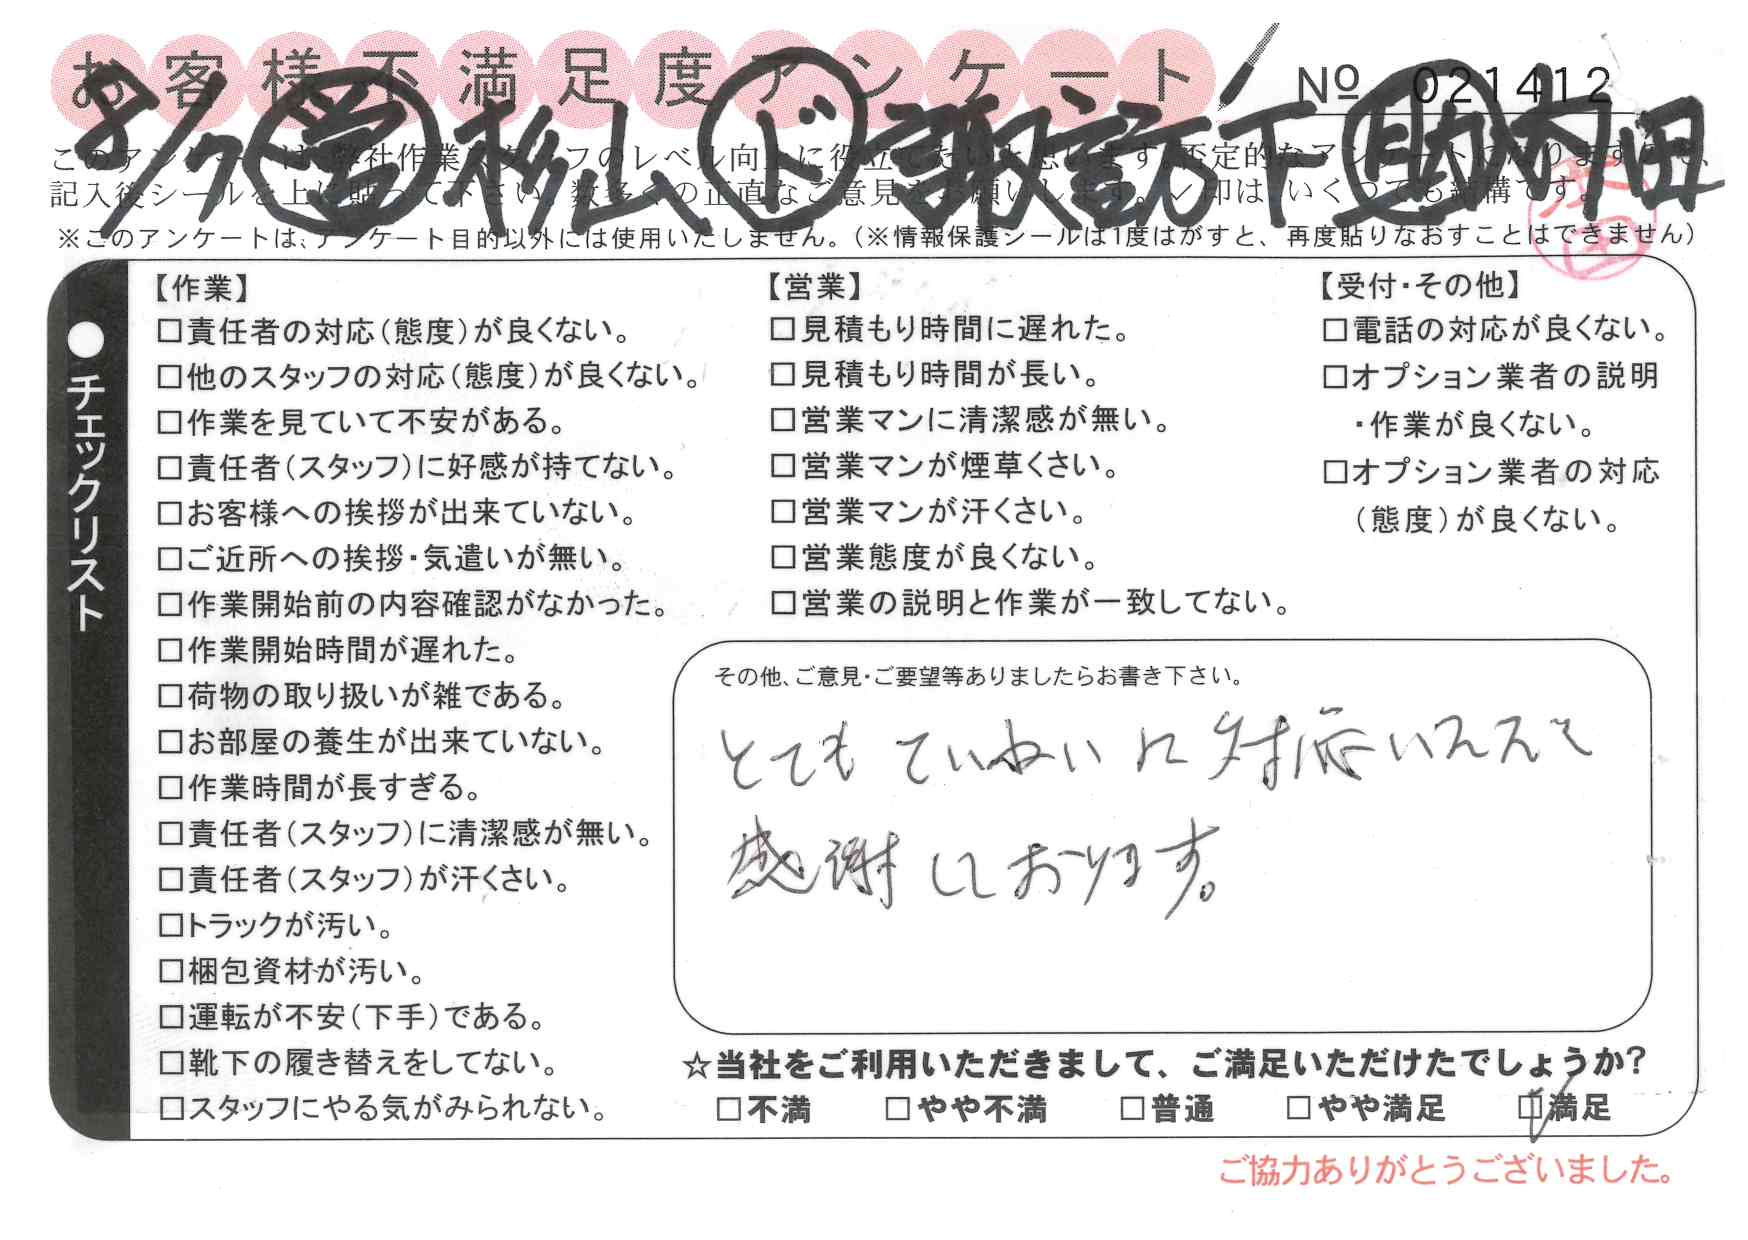 お客様不満足度アンケート
№ 021412
8/7 営 杉山 ド 諏訪下 助 本田
このアンケートは、弊社作業スタッフのレベル向上に役立てたいと思います。否定的なアンケートになりますので、
記入後シールを上に貼って下さい。数多くの正直なご意見をお願いします。✓印は、いくつでも結構です。
※このアンケートは、アンケート目的以外には使用いたしません。(※情報保護シールは1度はがすと、再度貼りなおすことはできません)
●チェックリスト
【作業】
□責任者の対応(態度)が良くない。
□他のスタッフの対応(態度)が良くない。
□作業を見ていて不安がある。
□責任者(スタッフ)に好感が持てない。
□お客様への挨拶が出来ていない。
□ご近所への挨拶・気遣いが無い。
□作業開始前の内容確認がなかった。
□作業開始時間が遅れた。
□荷物の取り扱いが雑である。
□お部屋の養生が出来ていない。
□作業時間が長すぎる。
□責任者(スタッフ)に清潔感が無い。
□責任者(スタッフ)が汗くさい。
□トラックが汚い。
□梱包資材が汚い。
□運転が不安(下手)である。
□靴下の履き替えをしてない。
□スタッフにやる気がみられない。
【営業】
□見積もり時間に遅れた。
□見積もり時間が長い。
□営業マンに清潔感が無い。
□営業マンが煙草くさい。
□営業マンが汗くさい。
□営業態度が良くない。
□営業の説明と作業が一致してない。
【受付・その他】
□電話の対応が良くない。
□オプション業者の説明
・作業が良くない。
□オプション業者の対応
(態度)が良くない。
その他、ご意見・ご要望等ありましたらお書き下さい。
とてもていねいに対応いただき
感謝しております。
☆当社をご利用いただきまして、ご満足いただけたでしょうか?
□不満 □やや不満 □普通 □やや満足 ☑満足
ご協力ありがとうございました。